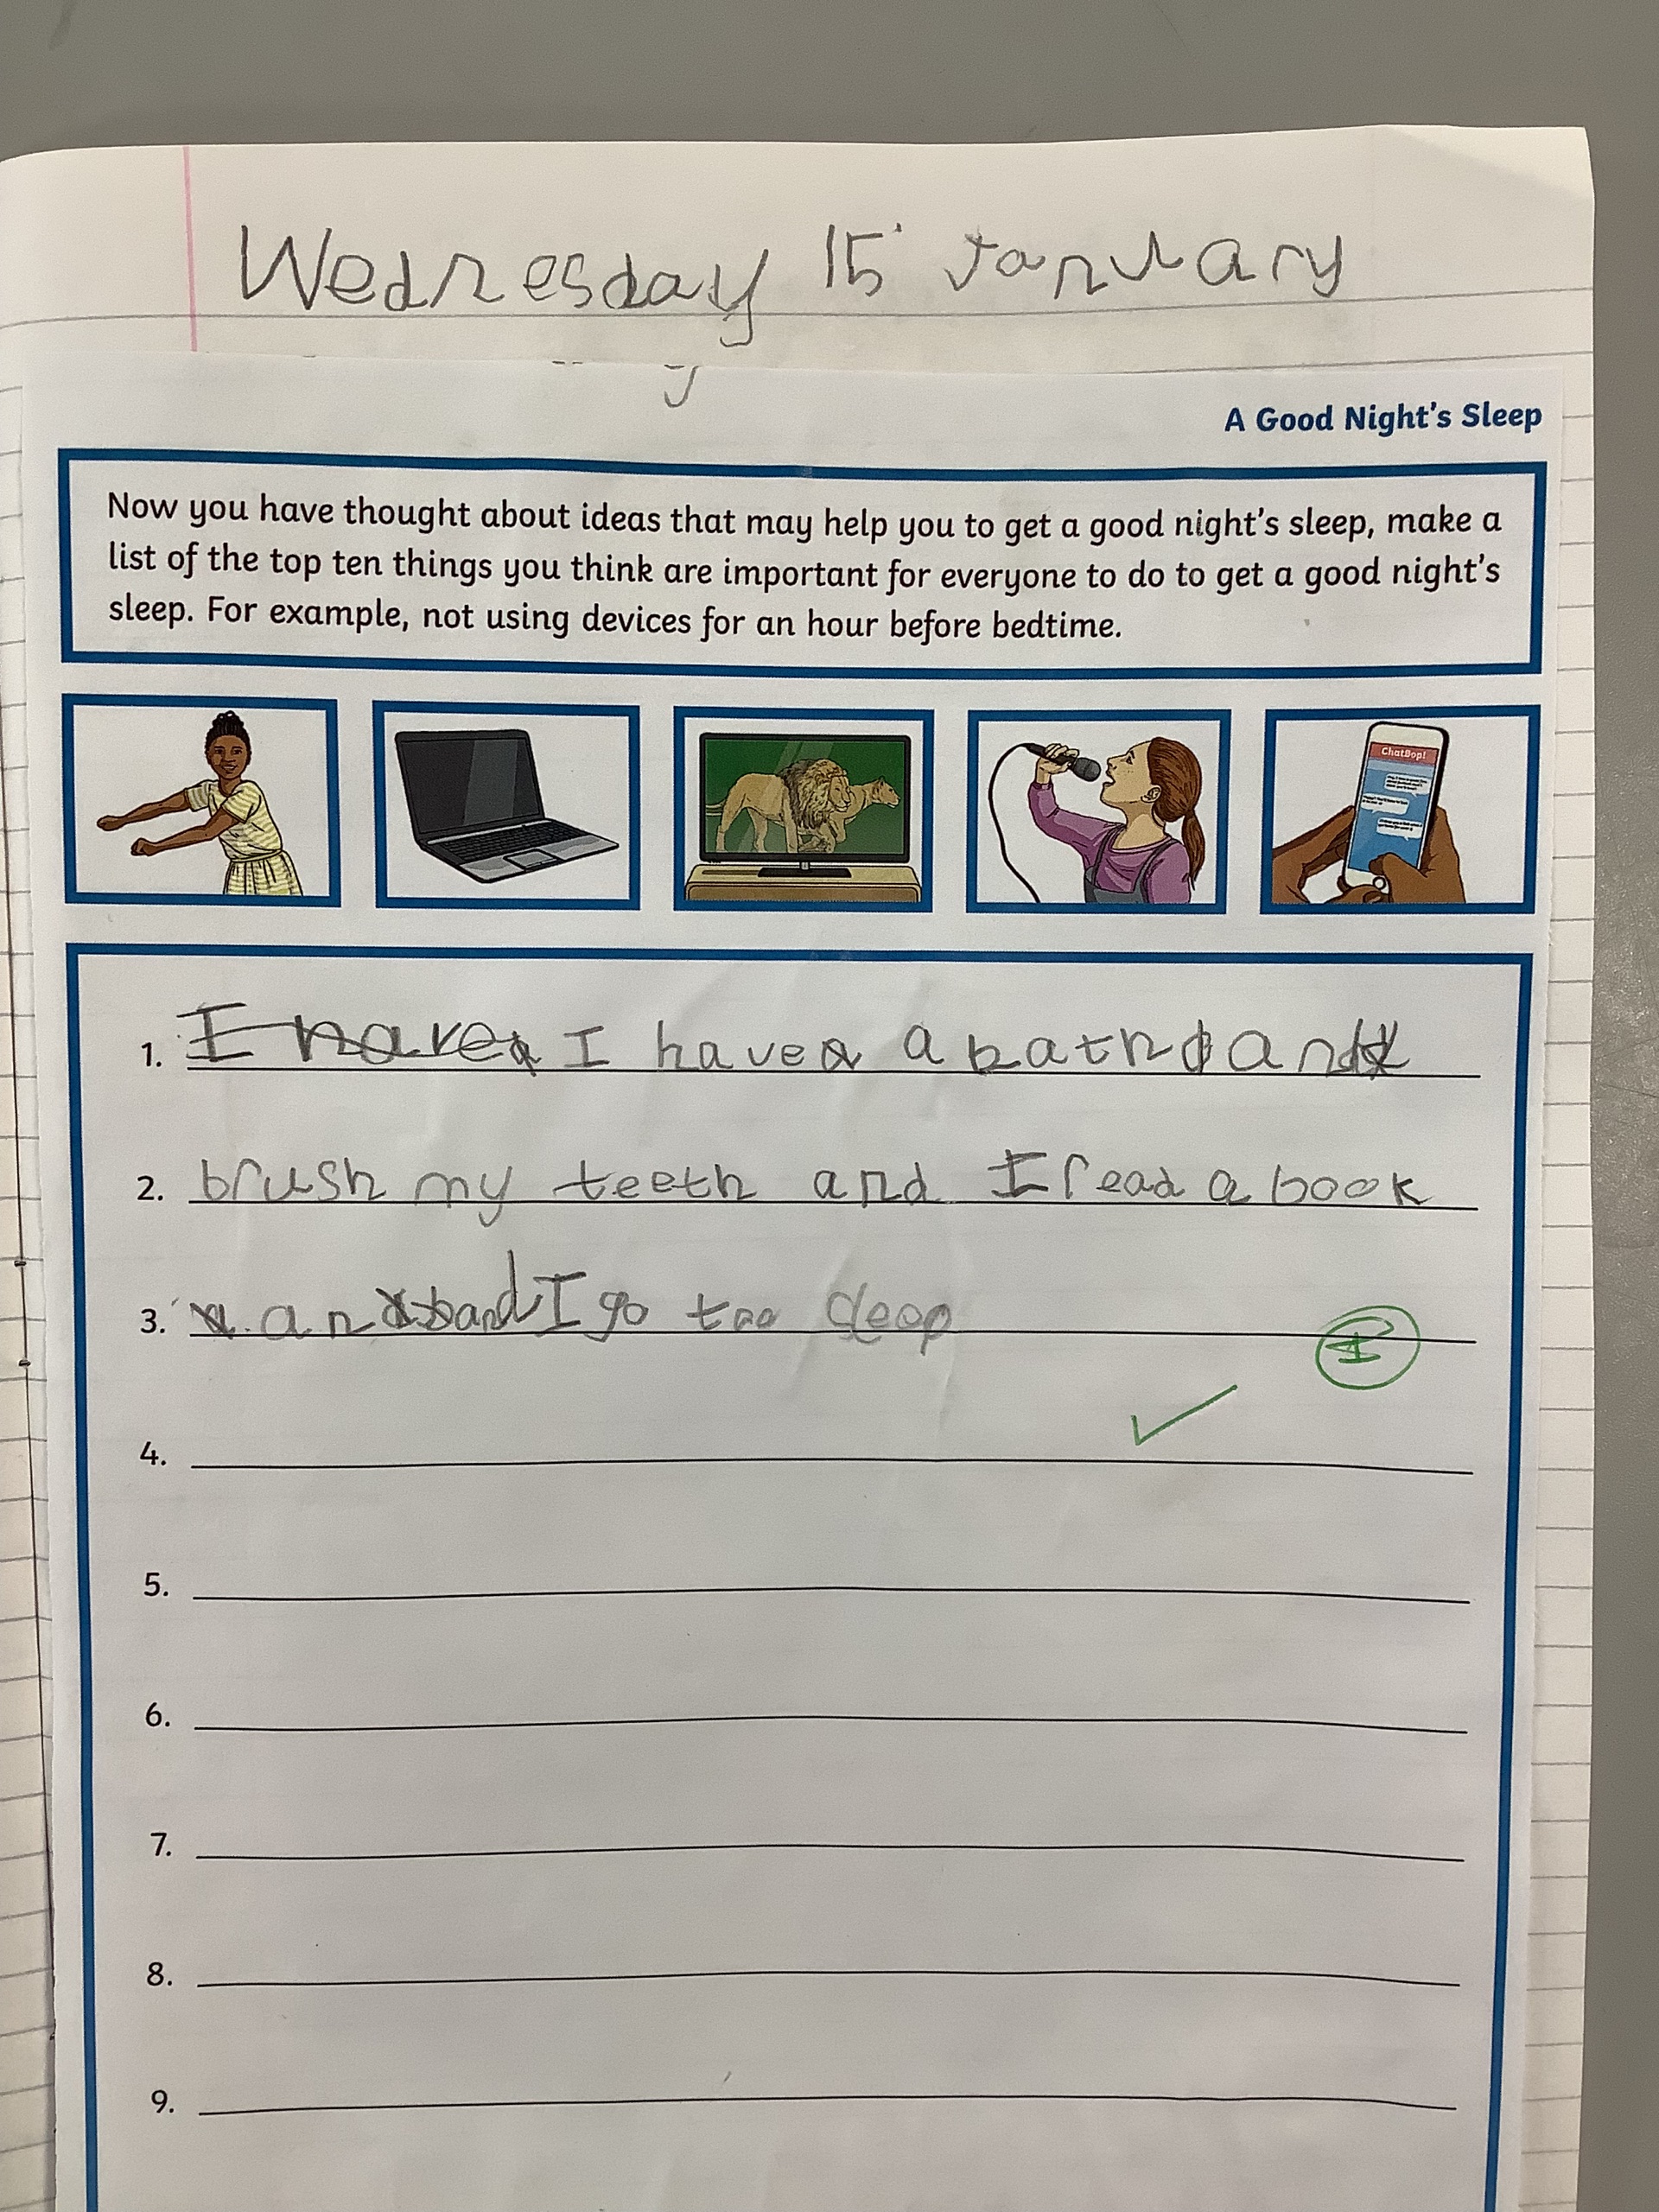 Wednesday 15 January
A Good Night's Sleep
Now you have thought about ideas that may help you to get a good night's sleep, make a
list of the top ten things you think are important for everyone to do to get a good night's
sleep. For example, not using devices for an hour before bedtime.
ChatBop!
1. I have I have a bath and
2. brush my teeth and I read a book
3. and I go too sleep
I
4.
5.
6.
7.
8.
9.